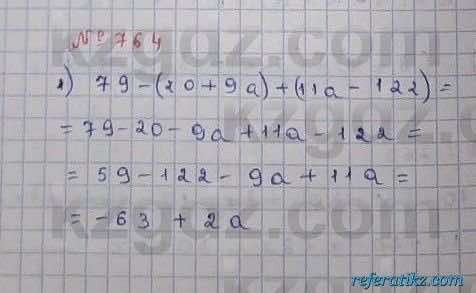 № 764
1) 79-(20+9a)+(11a-122)=
=79-20-9a+11a-122=
=59-122-9a+11a=
=-63+2a
kzgaz.com
referatikz.com